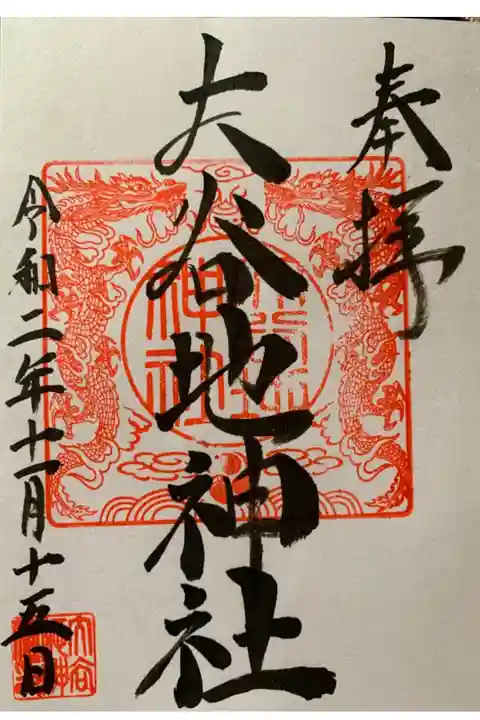 奉拝
大谷地神社
令和二年十一月十五日